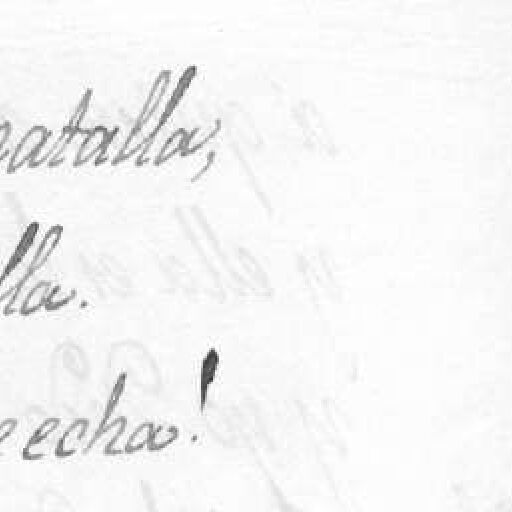 atalla,
lla.
e echa!